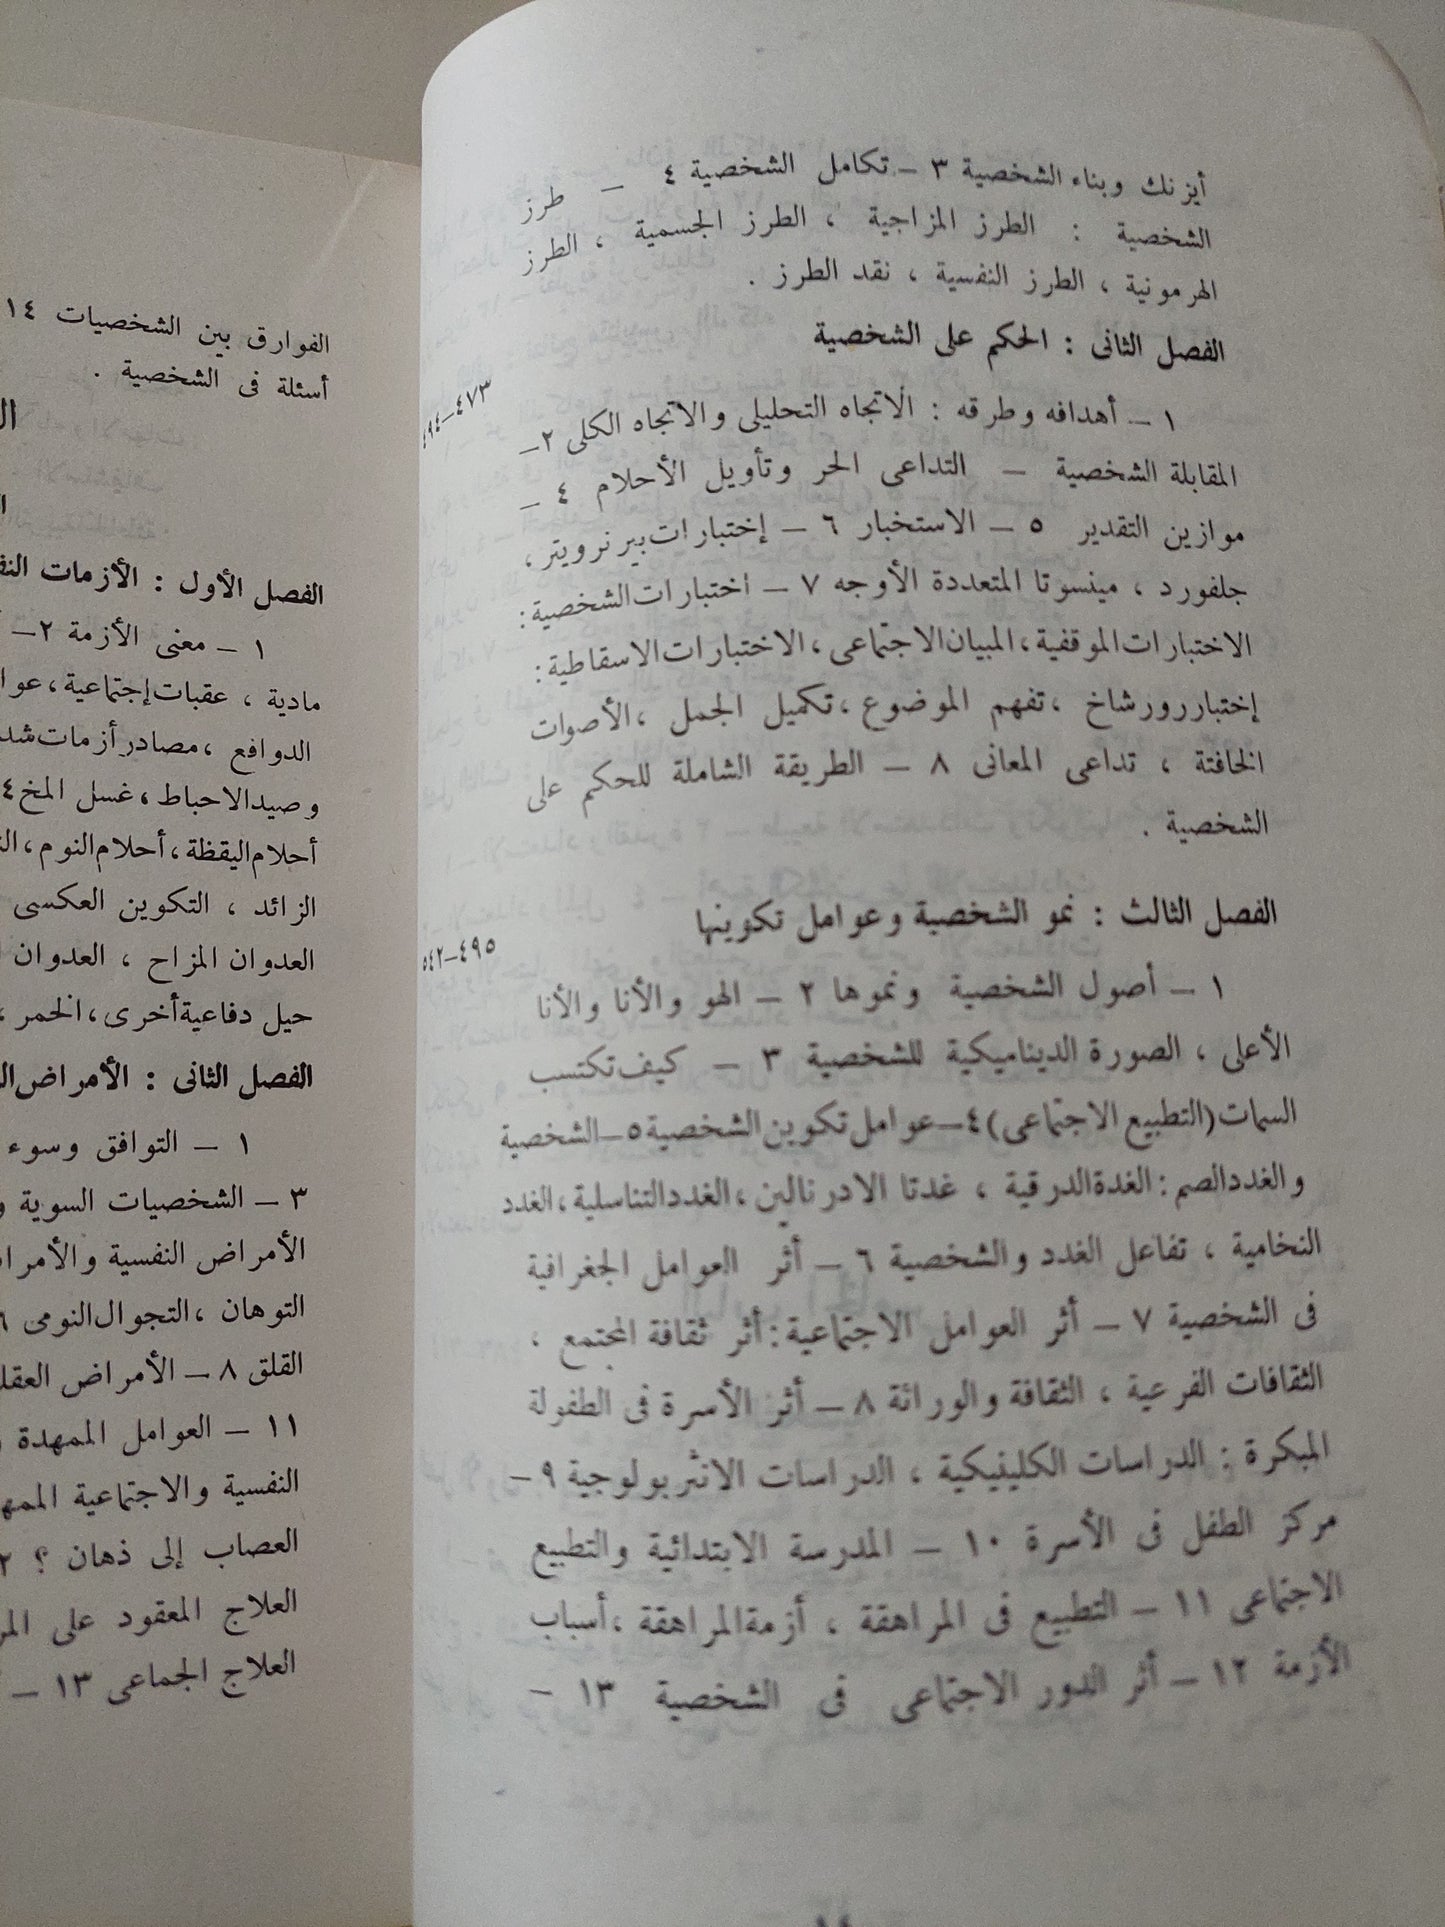 أيزنك وبناء الشخصية ٣ – تكامل الشخصية ٤ – طرز
الشخصية : الطرز المزاجية ، الطرز الجسمية ، الطرز
الهرمونية ، الطرز النفسية ، نقد الطرز .
الفصل الثانى : الحكم على الشخصية
٤٧٣–٤٩٤
١ – أهدافه وطرقه : الاتجاه التحليلى والاتجاه الكلى ٢–
المقابلة الشخصية – التداعى الحر وتأويل الأحلام ٤ –
موازين التقدير ٥ – الاستخبار ٦ – إختبارات بيرنرويتر ،
جلفورد ، مينسوتا المتعددة الأوجه ٧ – اختبارات الشخصية :
الاختبارات الموقفية ، المبيان الاجتماعى ، الاختبارات الاسقاطية :
إختبار رورشاخ ، تفهم الموضوع ، تكميل الجمل ، الأصوات
الخافتة ، تداعى المعانى ٨ – الطريقة الشاملة للحكم على
الشخصية .
الفصل الثالث : نمو الشخصية وعوامل تكوينها
٤٩٥–٥٤٢
١ – أصول الشخصية ونموها ٢ – الهو والأنا والأنا
الأعلى ، الصورة الديناميكية للشخصية ٣ – كيف تكتسب
السمات (التطبيع الاجتماعى) ٤–عوامل تكوين الشخصية ٥–الشخصية
والغدد الصم : الغدة الدرقية ، غدتا الادرنالين ، الغدد التناسلية ، الغدد
النخامية ، تفاعل الغدد والشخصية ٦ – أثر العوامل الجغرافية
فى الشخصية ٧ – أثر العوامل الاجتماعية : أثر ثقافة المجتمع ،
الثقافات الفرعية ، الثقافة والوراثة ٨ – أثر الأسرة فى الطفولة
المبكرة : الدراسات الكلينيكية ، الدراسات الانثربولوجية ٩ –
مركز الطفل فى الأسرة ١٠ – المدرسة الابتدائية والتطبيع
الاجتماعى ١١ – التطبيع فى المراهقة ، أزمة المراهقة ، أسباب
الأزمة ١٢ – أثر الدور الاجتماعى فى الشخصية ١٣ –
الفوارق بين الشخصيات ١٤
أسئلة فى الشخصية .
الفصل الأول : الأزمات
١ – معنى الأزمة ٢–
مادية ، عقبات إجتماعية ،
الدوافع ، مصادر أزمات
وصيد الاحباط ، غسل المخ ٤
أحلام اليقظة ، أحلام النوم ،
الزائد ، التكوين العكسى
العدوان المزاح ، العدوان
حيل دفاعية أخرى ، الخمر ،
الفصل الثانى : الأمراض
١ – التوافق وسوء
٣ – الشخصيات السوية
الأمراض النفسية
التوهان ، التجوال النومى ٦
القلق ٨ – الأمراض
١١ – العوامل الممهدة
النفسية والاجتماعية
العصاب إلى ذهان ؟
العلاج المعقود على
العلاج الجماعى ١٣ –